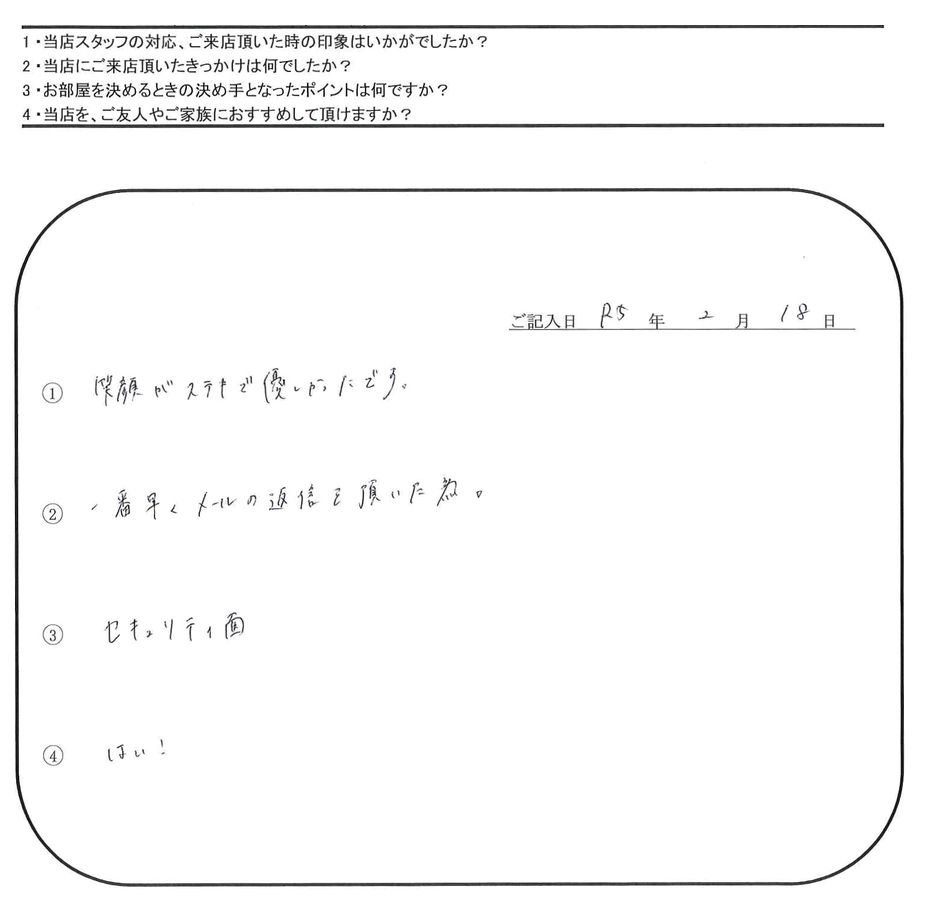 1・当店スタッフの対応、ご来店頂いた時の印象はいかがでしたか？
2・当店にご来店頂いたきっかけは何でしたか？
3・お部屋を決めるときの決め手となったポイントは何ですか？
4・当店を、ご友人やご家族におすすめして頂けますか？
ご記入日 R5 年 2 月 18 日
① 笑顔がステキで優しかったです。
② 一番早くメールの返信を頂いた為。
③ セキュリティ面
④ はい！